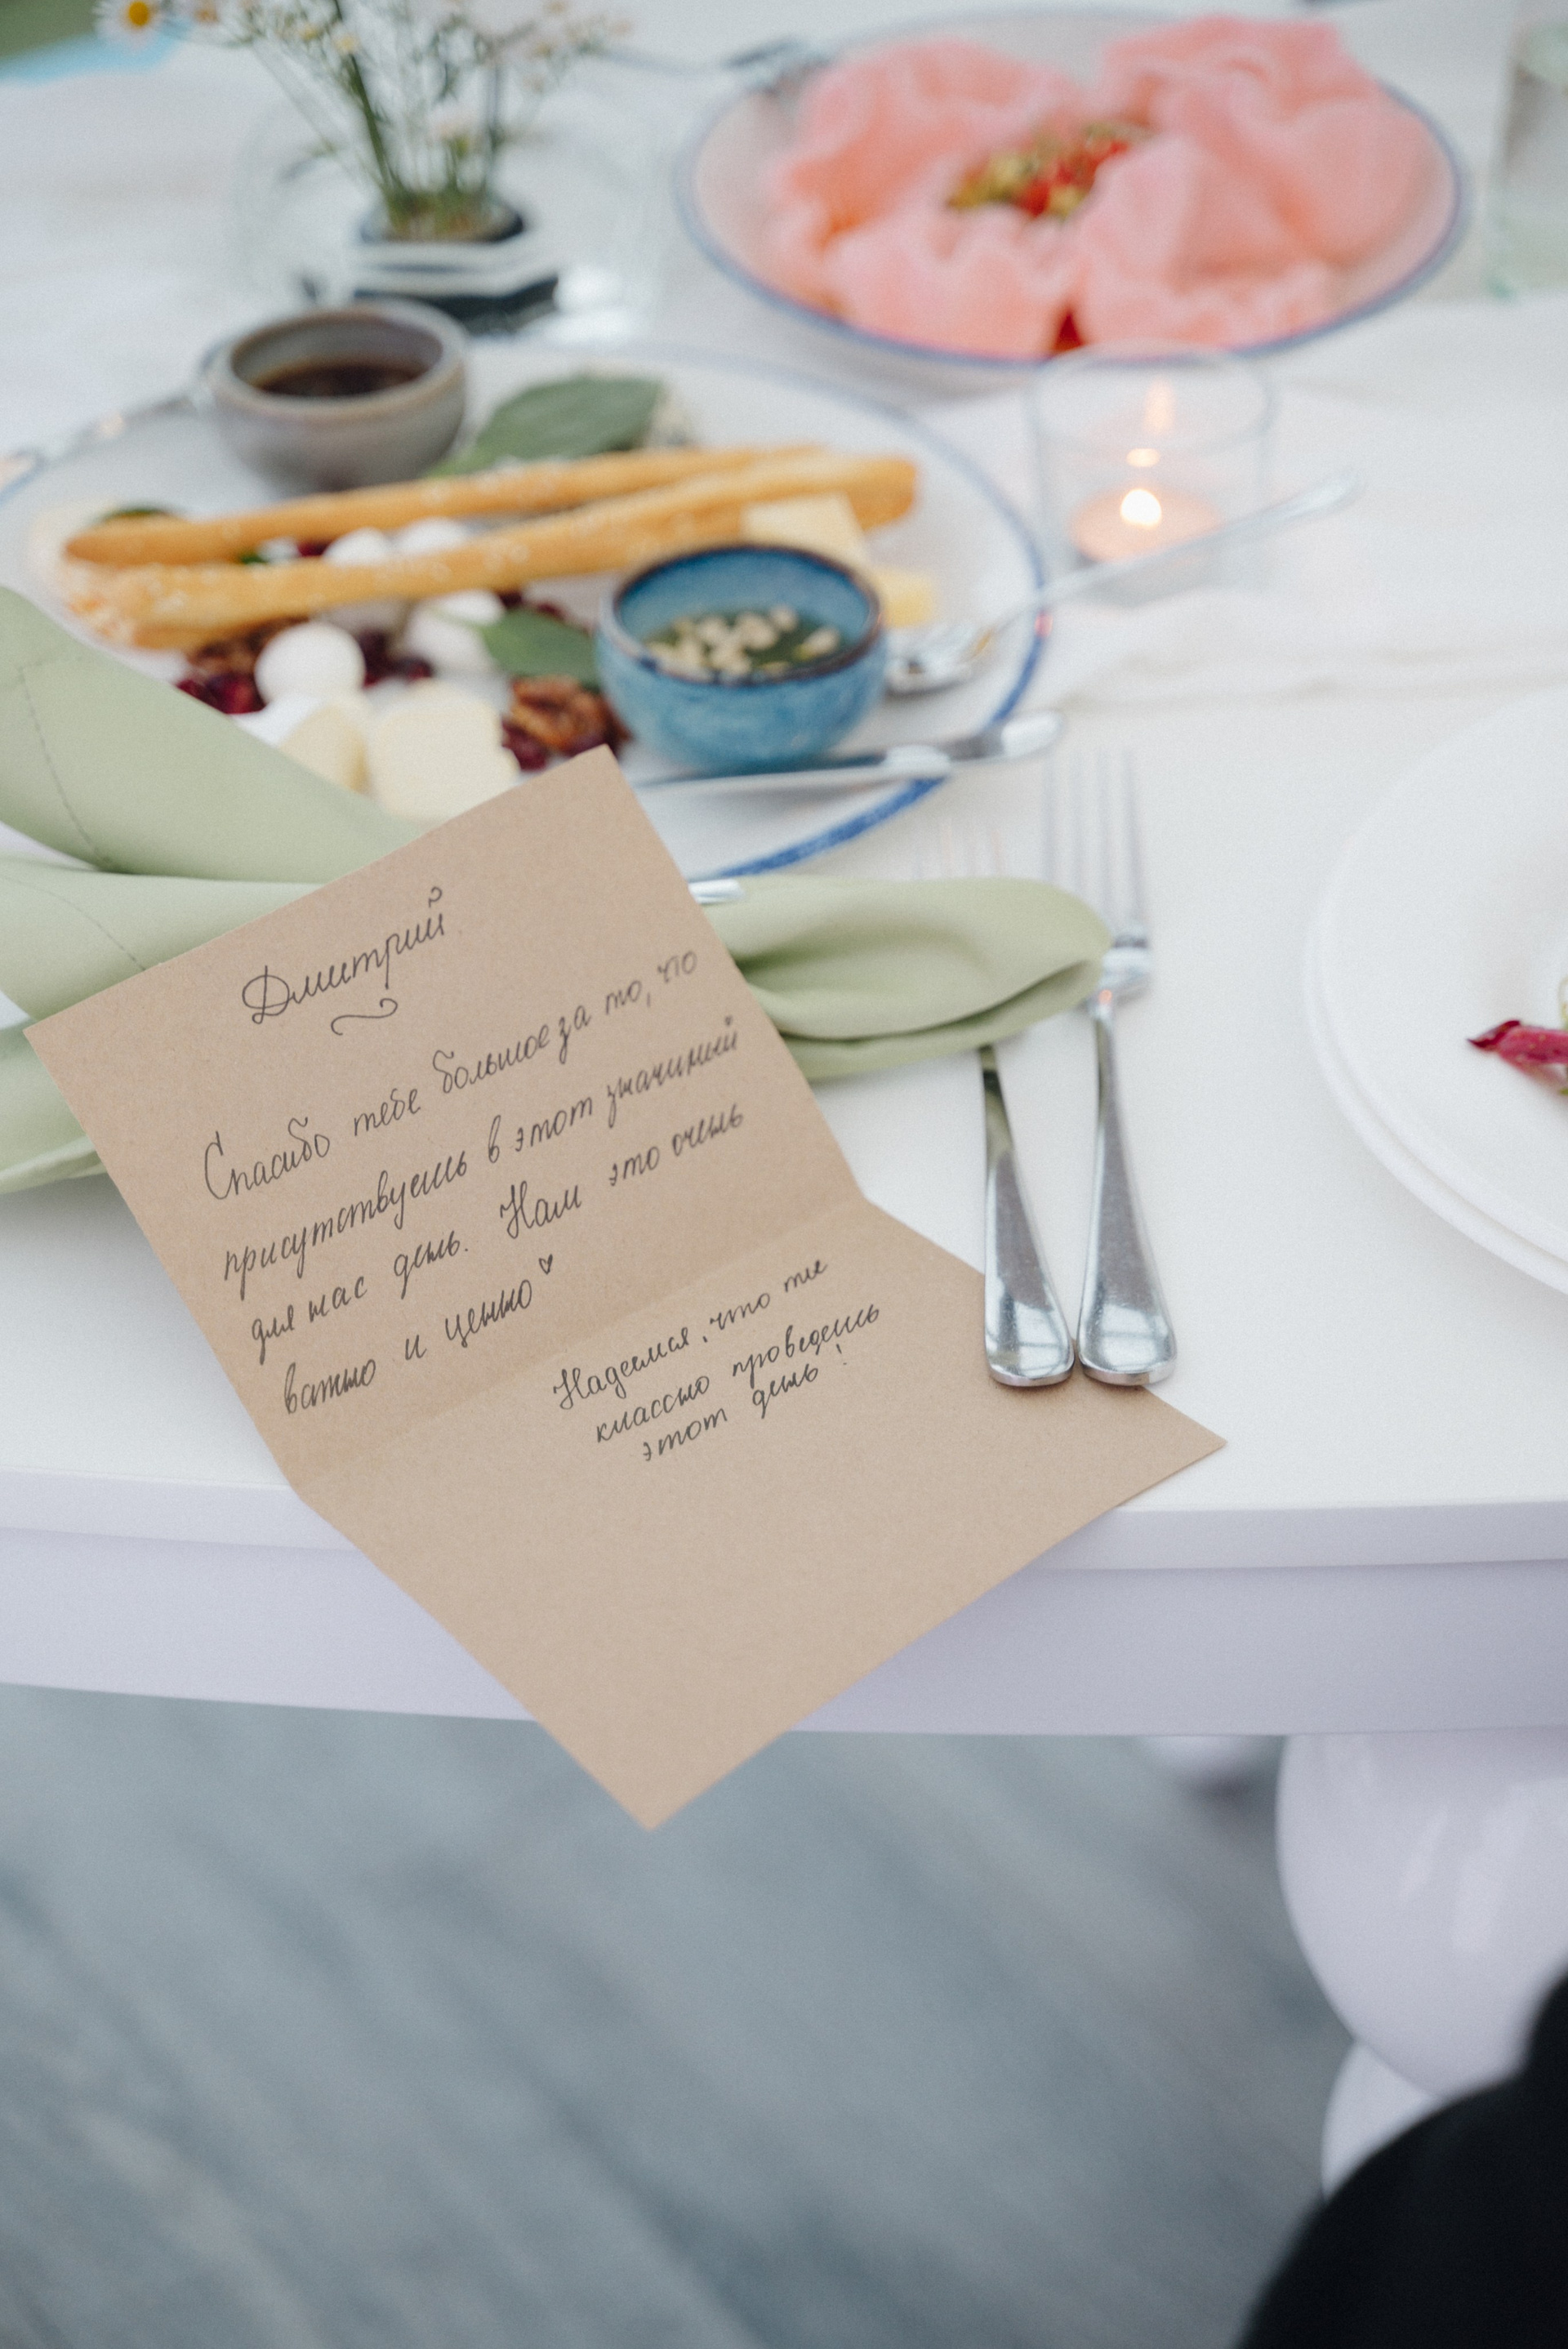 Дмитрий
Спасибо тебе большое за то, что
присутствуешь в этот значимый
для нас день. Нам это очень
важно и ценно ♥
Надеемся, что ты
классно проведешь
этот день!